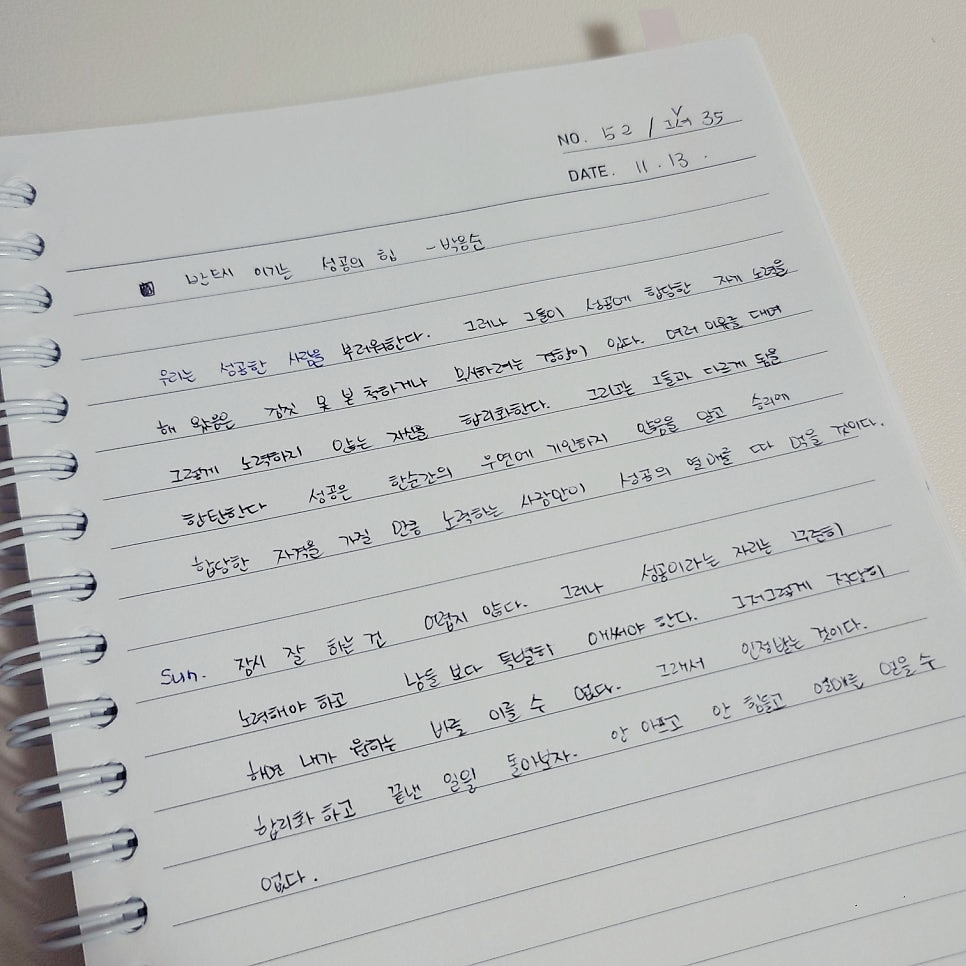 NO. 52 / 독서 35
DATE. 11. 13.
반드시 이기는 성공의 힘 - 박응순
우리는 성공한 사람을 부러워한다. 그러나 그들이 성공에 합당한 자기 노력을
해 왔음은 짐짓 못 본 척하거나 무시하려는 경향이 있다. 여러 이유를 대며
그렇게 노력하지 않는 자신을 합리화한다. 그리고는 그들과 다르게 됨을
한탄한다 성공은 한순간의 우연에 기인하지 않음을 알고 승리에
합당한 자격을 가질 만큼 노력하는 사람만이 성공의 열매를 따 먹을 것이다.
Sun. 잠시 잘 하는 건 어렵지 않다. 그러나 성공이라는 자리는 꾸준히
노력해야 하고 남들 보다 특별히 애써야 한다. 그저그렇게 적당히
해면 내가 원하는 바를 이룰 수 없다. 그래서 인정받는 것이다.
합리화 하고 끝낸 일을 돌아보자. 안 아프고 안 힘들고 열매를 얻을 수
없다.